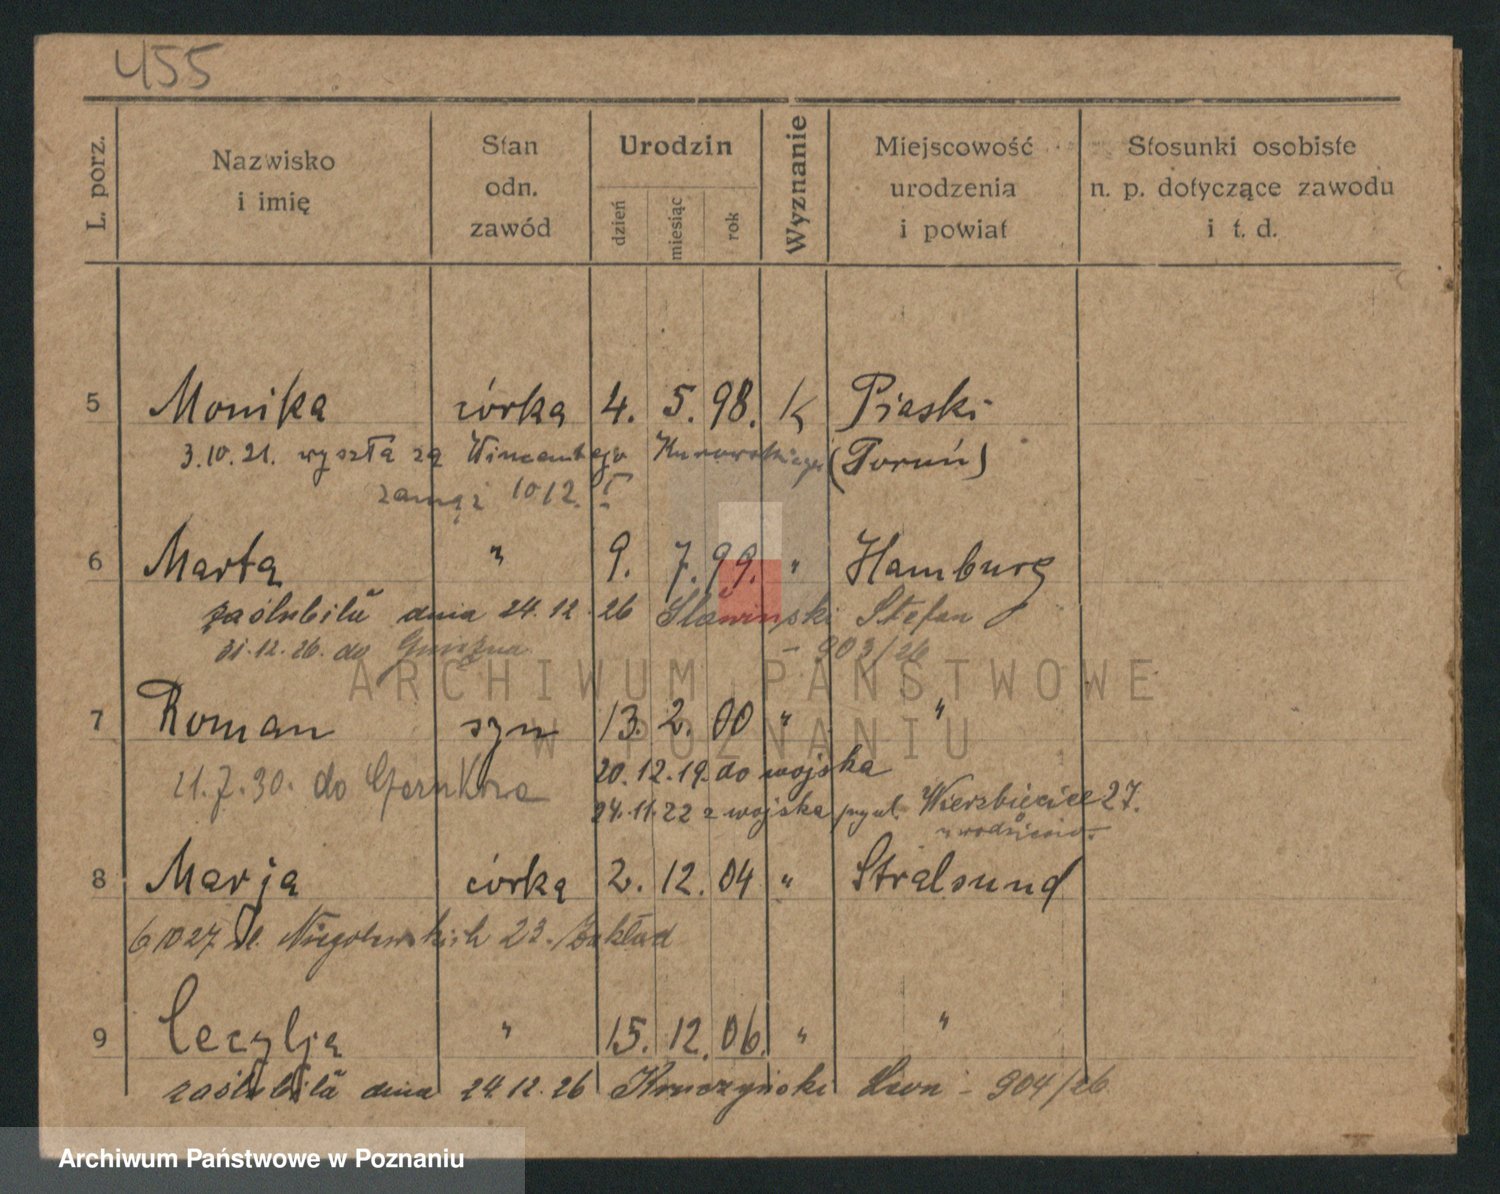 455
L. porz.
Nazwisko i imię
Stan odn. zawód
Urodzin
dzień
miesiąc
rok
Wyznanie
Miejscowość urodzenia i powiat
Stosunki osobiste n. p. dotyczące zawodu i t. d.
5 Monika córka 4. 5. 98. K Piaski
3.10.21. wyszła za Wincentego Kurowskiego (Toruń)
zamąż 1012. I
6 Marta " 9. 7. 99. " Hamburg
zaślubiła dnia 24.12.26 Sławinski Stefan
31.12.26. do Gniezna - 903/26
7 Roman syn 13. 2. 00 " "
20.12.19. do wojska
21.7.30. do Czarnkowa
24.11.22 z wojska Wierzbięcice 27.
u rodziców
8 Marja córka 2. 12. 04 " Stralsund
6 10 27 ul. Niegolewskich 23. Zakład
9 Cecylja " 15. 12. 06. " "
zaślubiła dnia 24.12.26 Kruczyński Leon - 904/26
ARCHIWUM PAŃSTWOWE
W POZNANIU
Archiwum Państwowe w Poznaniu